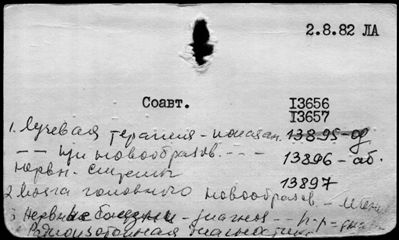 2.8.82 ЛА
Соавт. I3656
I3657
1. Лучевая терапия - показан. 13895-од
-- при новообразов. - - - 13896-аб.
нервн. системы
13897
2 мозга головного новообразов. -
3 Нервные болезни - диагноз -
Радиоизотопная диагностика